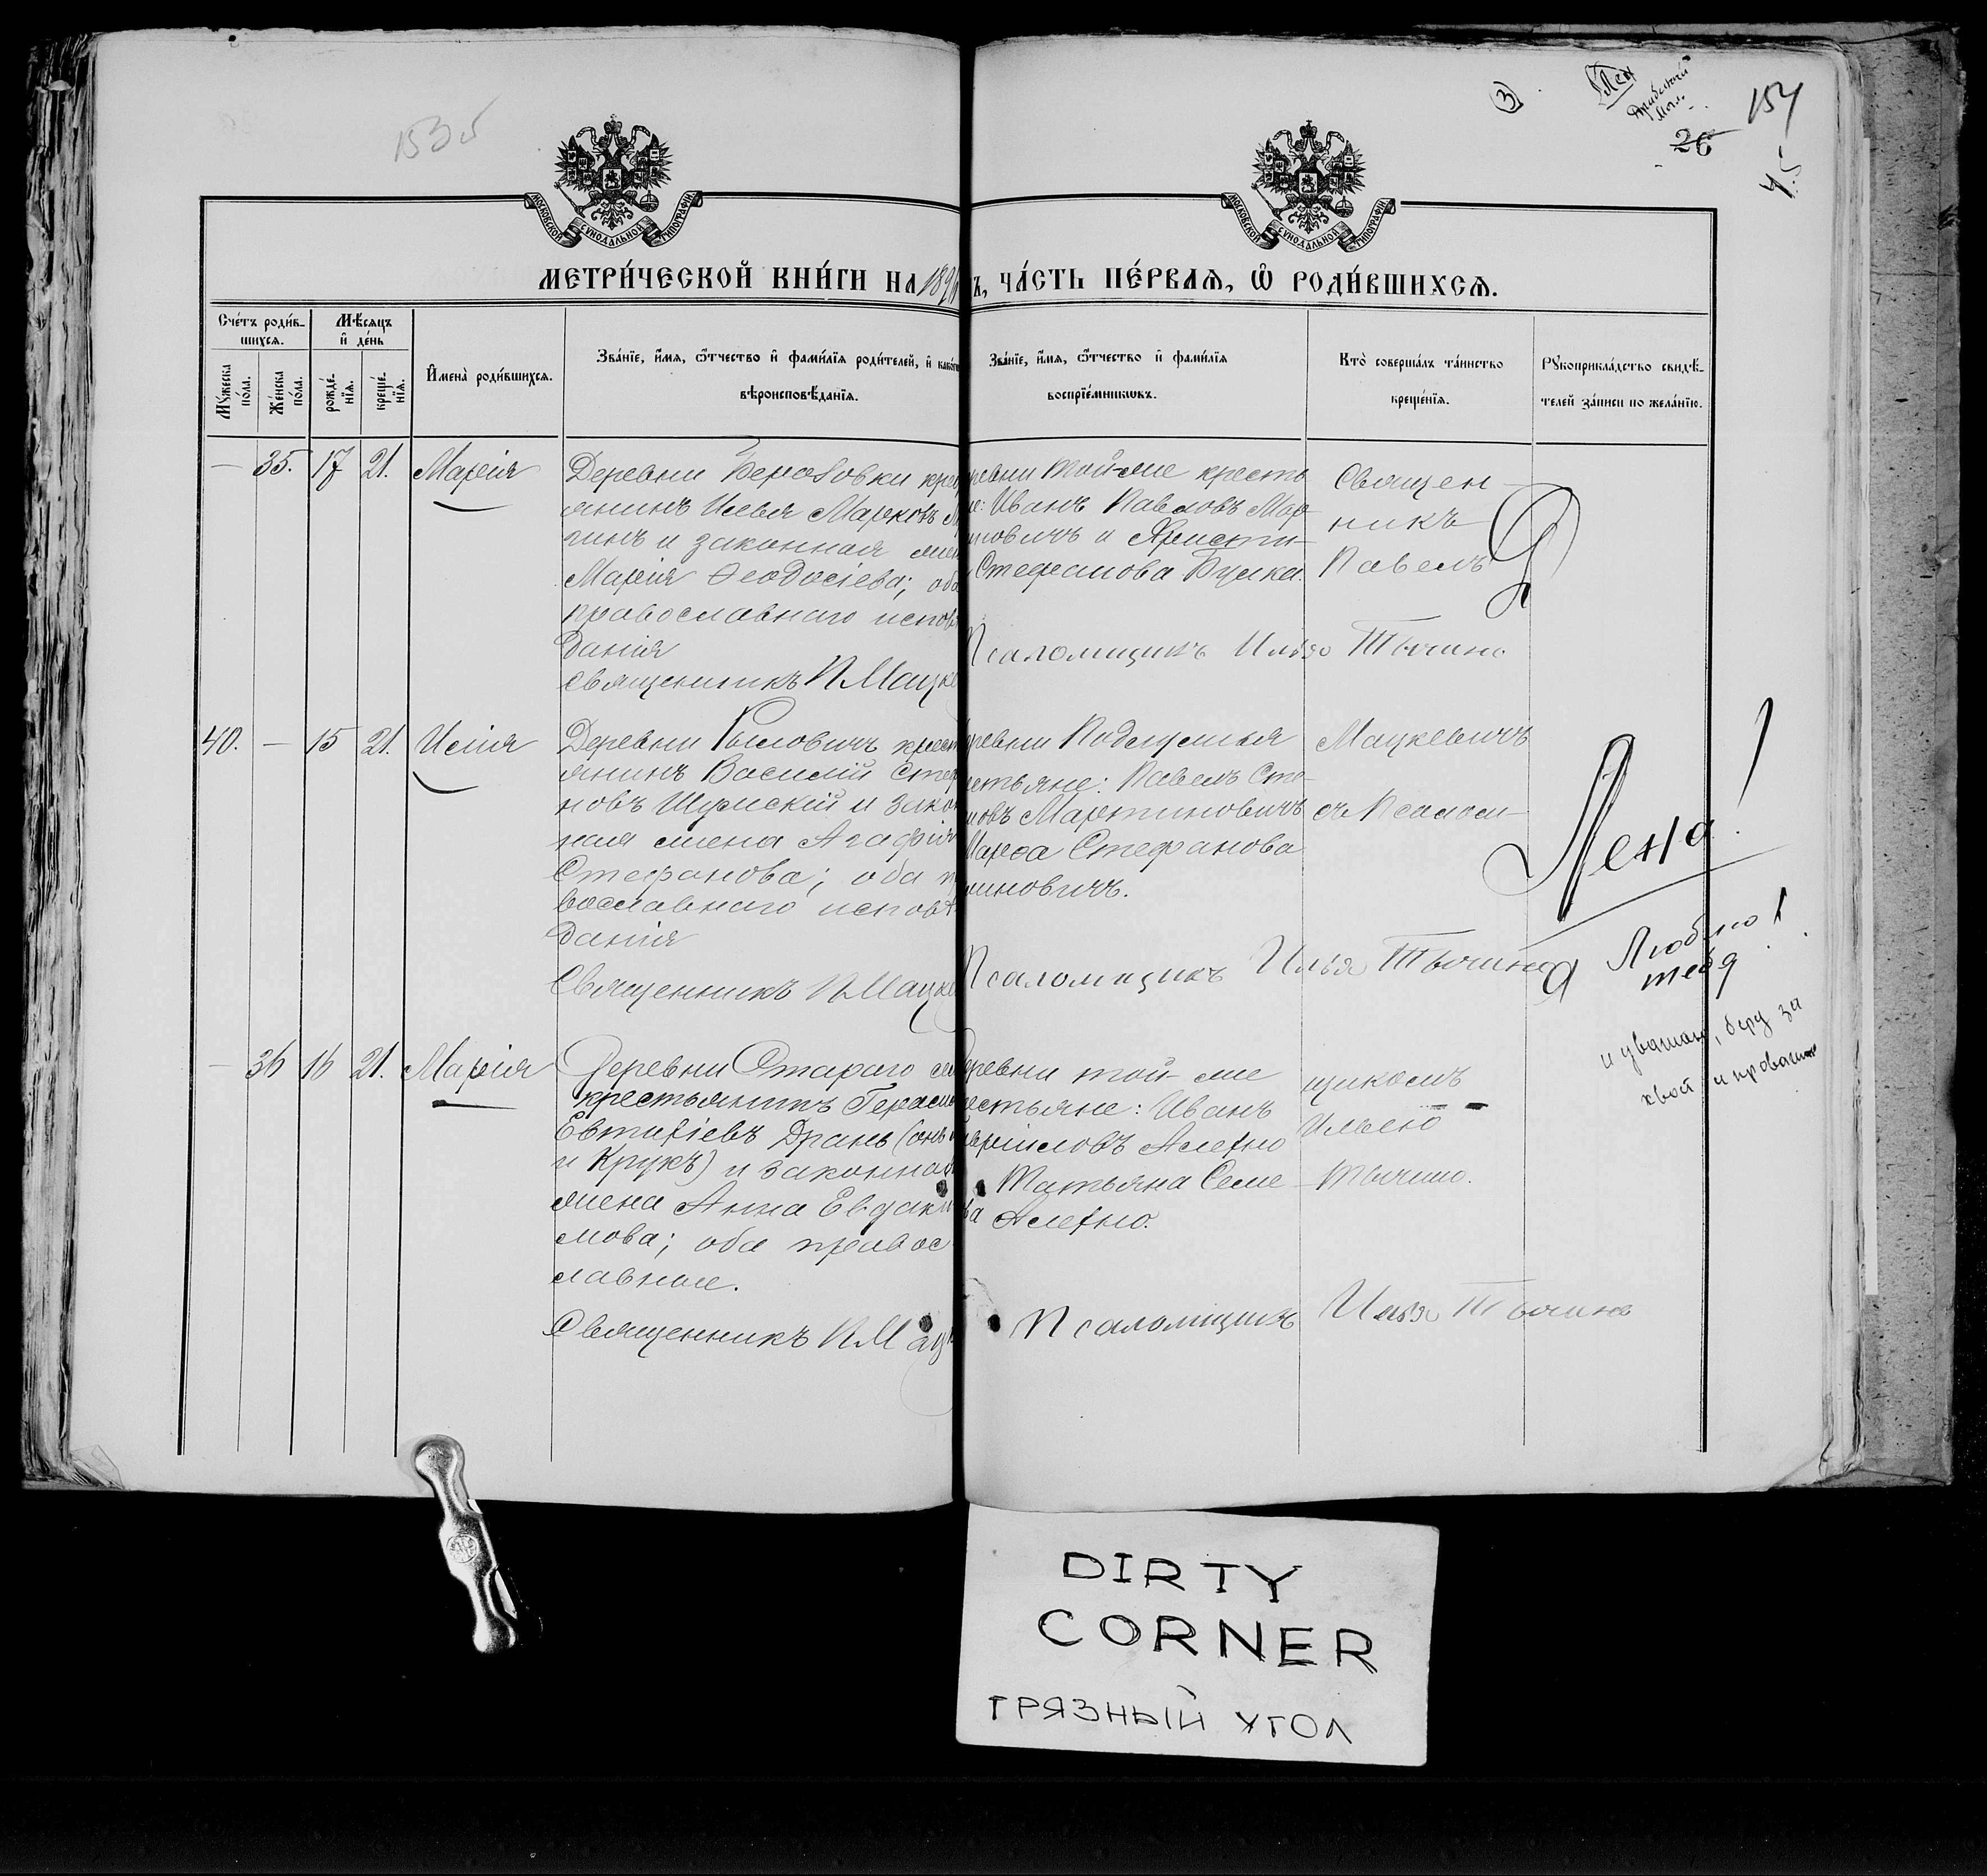 153 об
3
154
26
45
МОСКОВСКОЙ СѴНОДАЛЬНОЙ ТИПОГРАФІИ
МОСКОВСКОЙ СѴНОДАЛЬНОЙ ТИПОГРАФІИ
МЕТРИ́ЧЕСКОЙ КНИ́ГИ НА 189
Ъ, ЧА́СТЬ ПЕ́РВАЯ, Ѡ҆ РОДИ́ВШИХСЯ.
Сче́тъ роди́в-
шихся.
Мꙋжеска по́ла.
Же́нска по́ла.
Мѣ́сяцъ
и҆ де́нь
рожде́-
нїя.
креще́-
нїя.
И҆мена̀ роди́вшихся.
Зва́нїе, и҆́мя, ѻ҆́тчество и҆ фами́лїя роди́телей, и҆ како́г
вѣроисповѣ́данїя.
Зва́нїе, и҆́мя, ѻ҆́тчество и҆ фами́лїя
воспрїе́мникѡвъ.
Кто̀ соверша́лъ та́инство
креще́нїя.
Рꙋкоприкла́дство свидѣ́-
телей за́писи по жела́нїю.
— 35. 17 21. Марія
Деревни
янинъ Илья Марковъ
гинъ и законная жен
Марія Ѳеодосіева; оба
православнаго исповѣ
данія
Священникъ П Мацке
ревни той-же кресть
е: Иванъ Павловъ Мар
новичъ и Христи-
Стефанова Буика.
Псаломщикъ Илья Тычино
Священ-
никъ
Павелъ
40. — 15 21. Илія
Деревни Рыловичъ крест
янинъ Василій Стефа
новъ Шумскій и закон
ная жена Агафія
Стефанова; оба п
вославнаго исповѣ
данія
Священникъ П Мацке
ревни Подлумья
естьяне: Павелъ Сте-
новъ Мартиновичъ
Марѳа Стефанова
иновичъ.
Псаломщикъ Илья Тычино
Мацкевичъ
съ Псалом-
— 36 16 21. Марія
Деревни Стараго
крестьянинъ Герасим
Евтихіевъ Дрань (онъ
и Крукъ) и законная
жена Анна Евдаки-
мова; оба правос-
лавные.
Священникъ П Мацк
ревни той-же
естьяне: Иванъ
вриловъ Алехно
Татьяна Семе-
ва Алехно.
Псаломщикъ Илья Тычино
щикомъ
Ильею
Тычино.
Я
Лена!
Я Люблю!
тебя
и уважаю, беру за
хвост и провожаю
DIRTY
CORNER
ГРЯЗНЫЙ УГОЛ